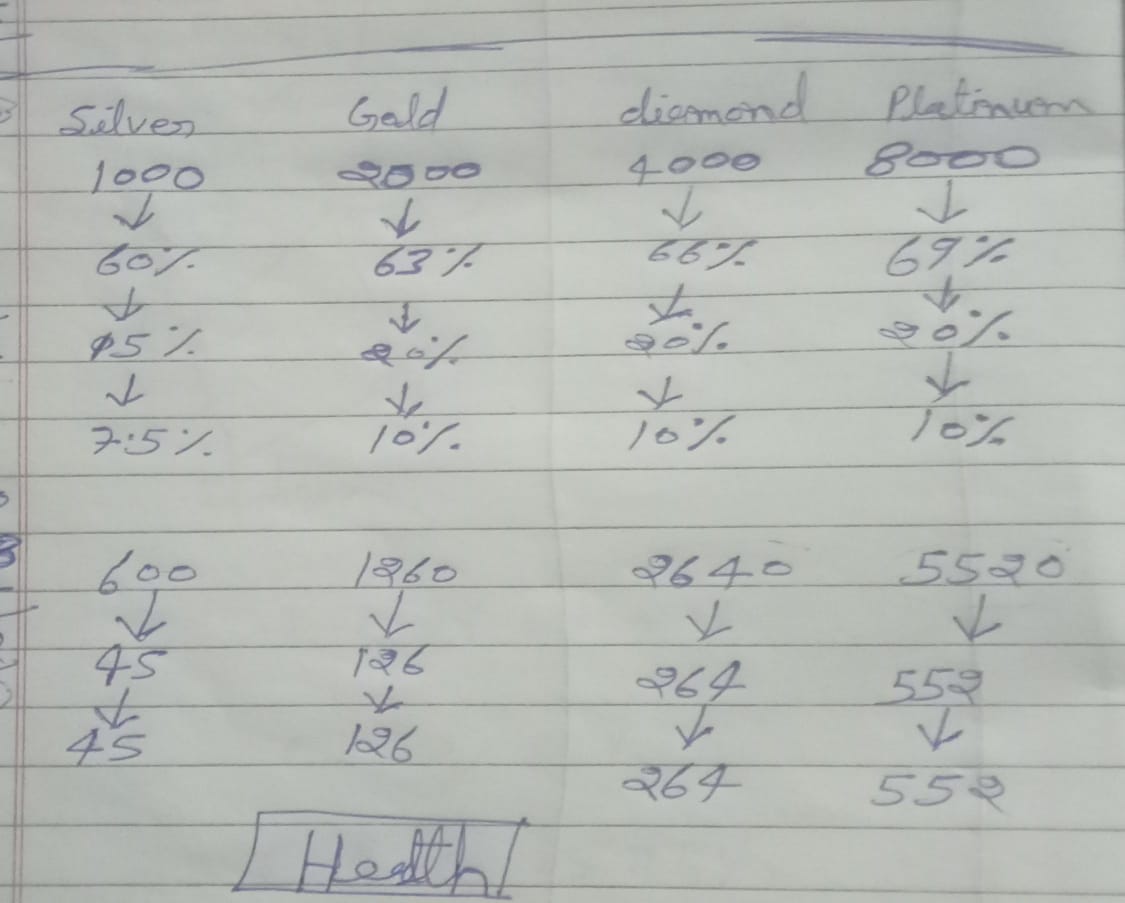 Silver Gold diamond Platinum
1000 2000 4000 8000
↓ ↓ ↓ ↓
60% 63% 66% 69%
↓ ↓ ↓ ↓
15% 20% 20% 20%
↓ ↓ ↓ ↓
7.5% 10% 10% 10%
600 1260 2640 5520
↓ ↓ ↓ ↓
45 126 264 552
↓ ↓ ↓ ↓
45 126 264 552
Health